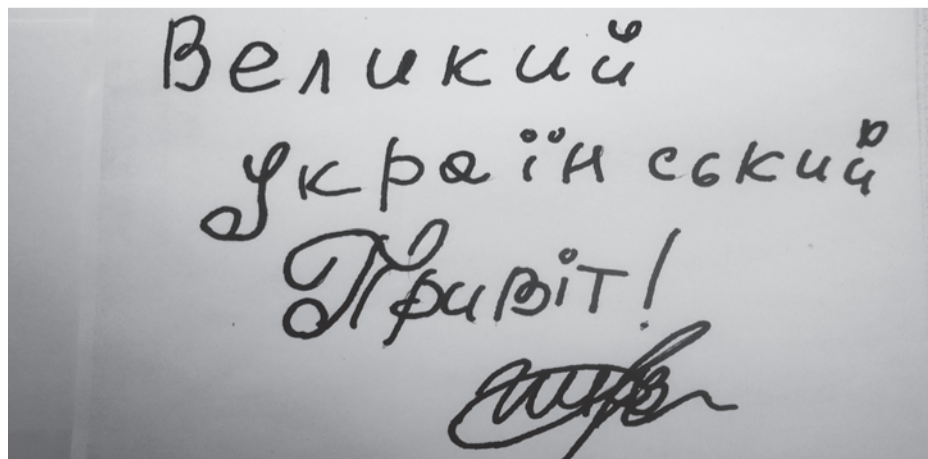 Великий
Український
Привіт!